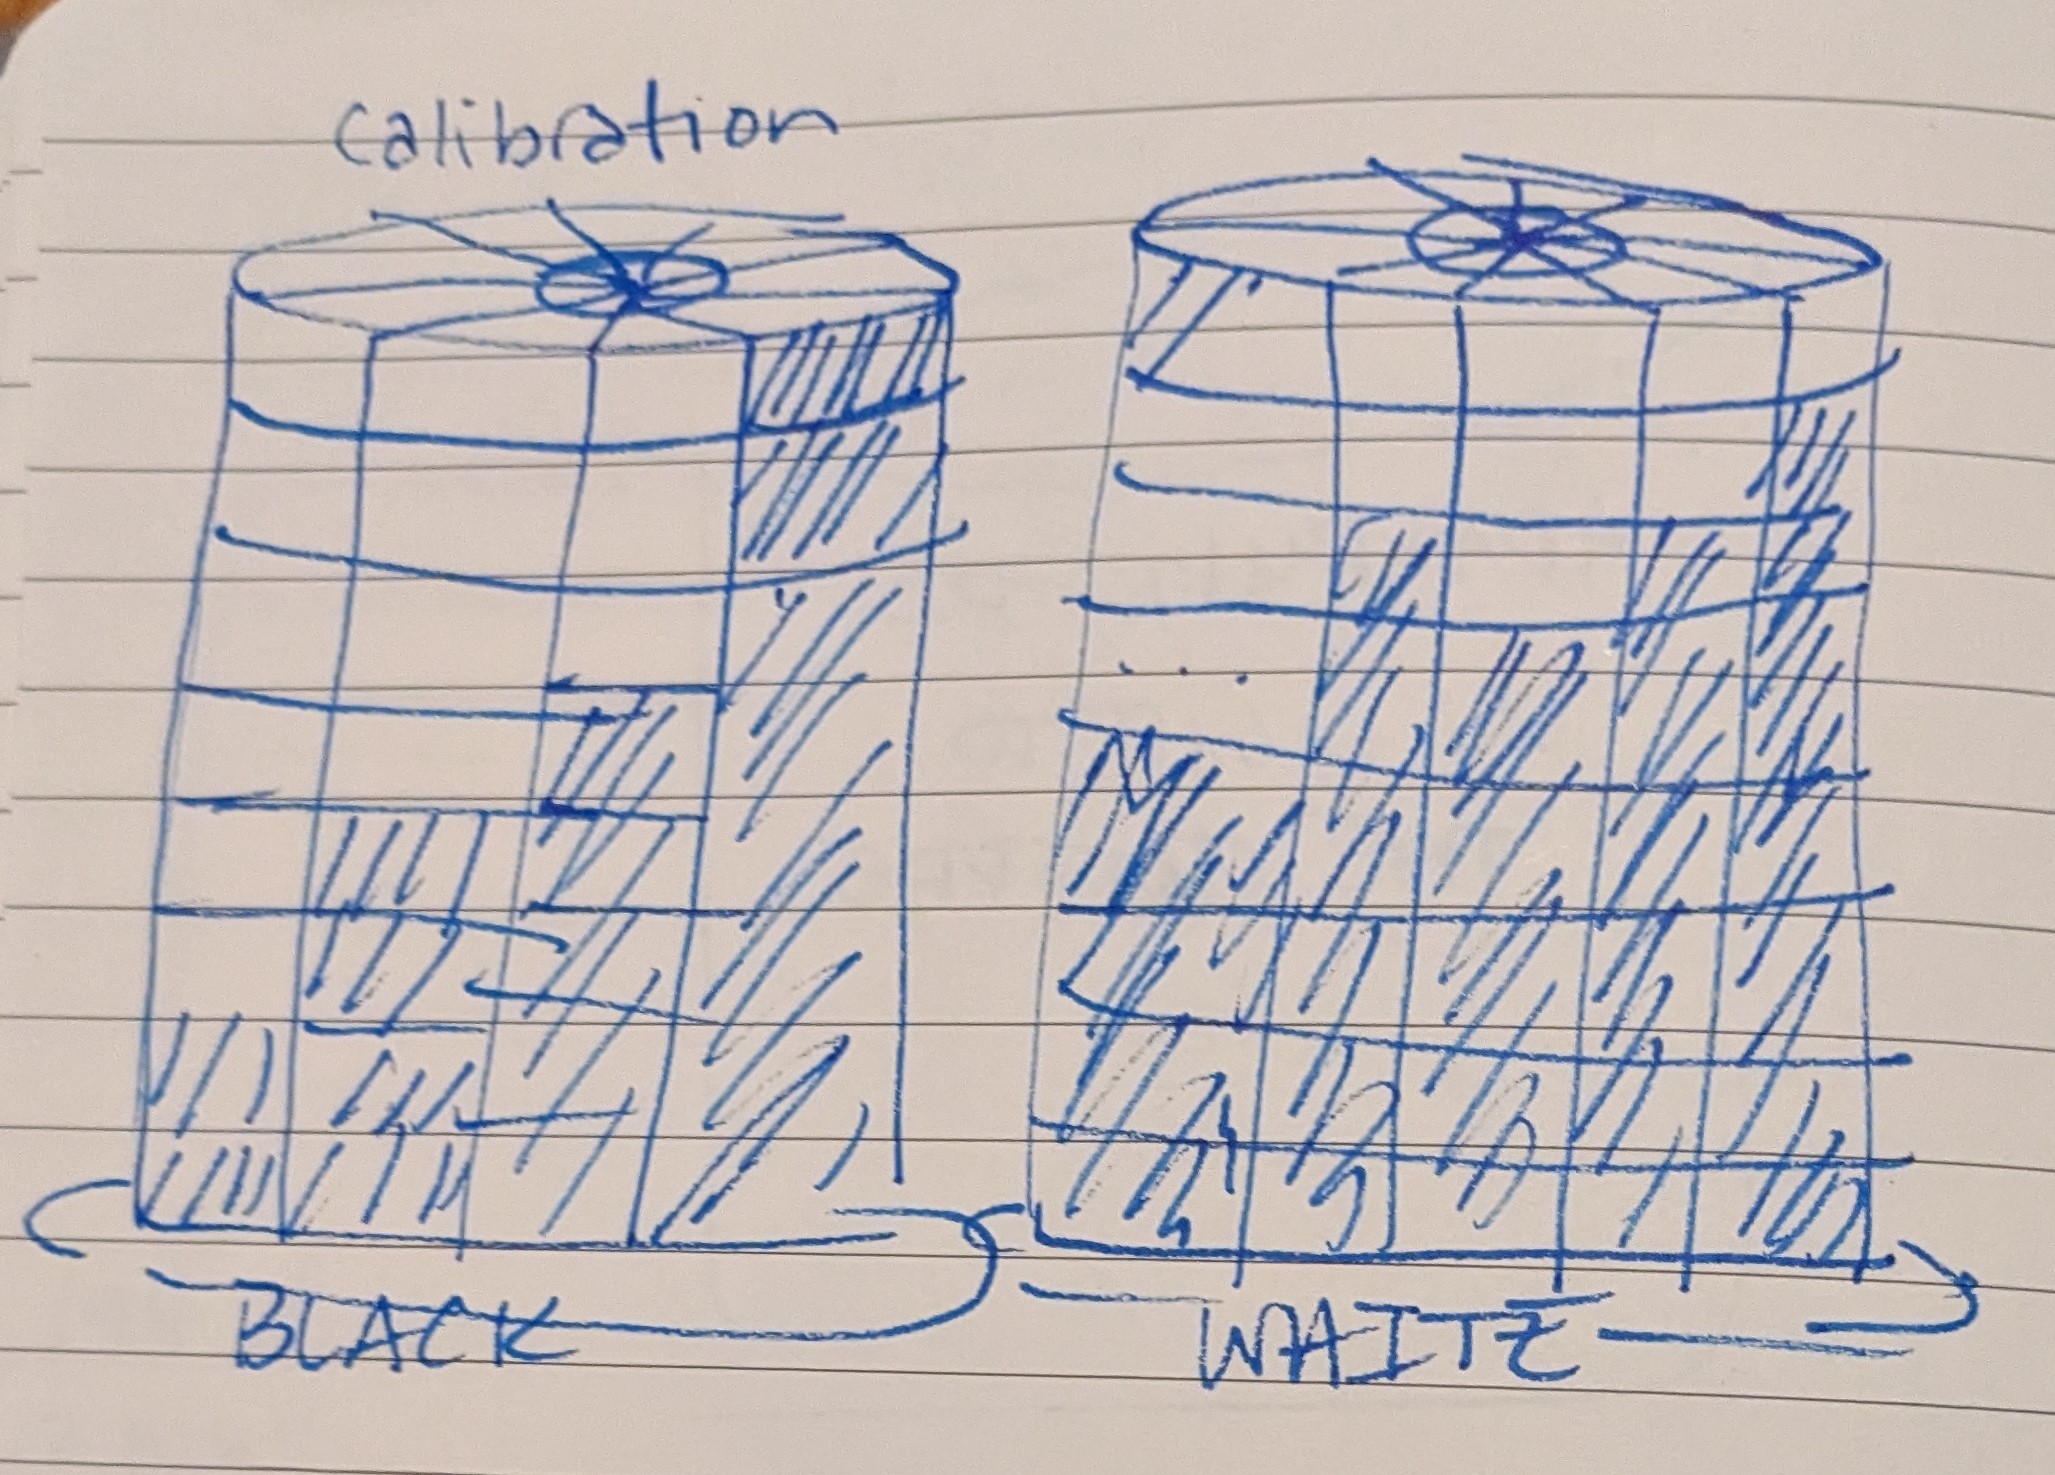 calibration
BLACK
WHITE